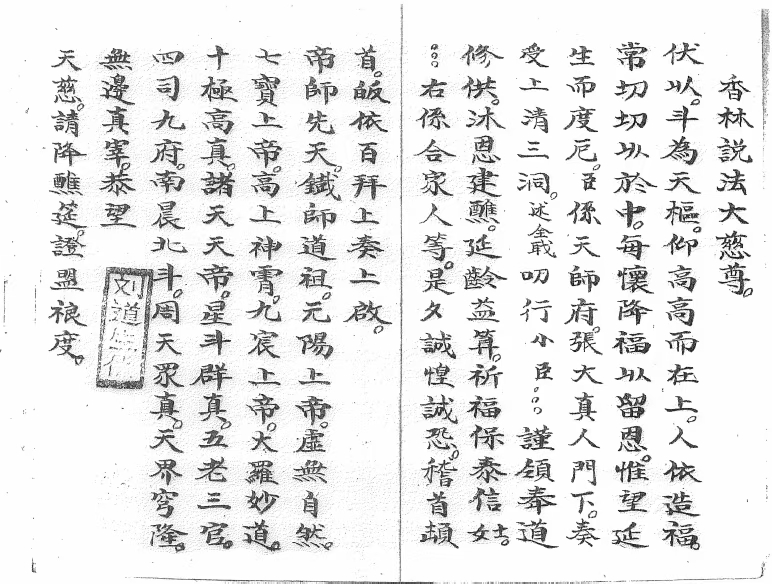 香林説法大慈尊。
伏以。斗為天樞。仰高高而在上。人依造福。
常切切以於中。每懷降福以留恩。惟望延
生而度厄。臣係天師府。張大真人門下。奏
受上清三洞。叨行小臣○○○謹領奉道
修供。沐恩建醮。延齡益算。祈福保泰信士女。
○○○右係合家人等。是夕誠惶誠恐。稽首頓
首。皈依百拜上奏上啟。
帝師先天。鐵師道祖。元陽上帝。虛無自然。
七寶上帝。高上神霄。九宸上帝。大羅妙道。
十極高真。諸天天帝。星斗群真。五老三官。
四司九府。南晨北斗。周天眾真。天界穹隆。
無邊真宰。恭望
天慈。請降醮筵。證盟禳度。
刘道